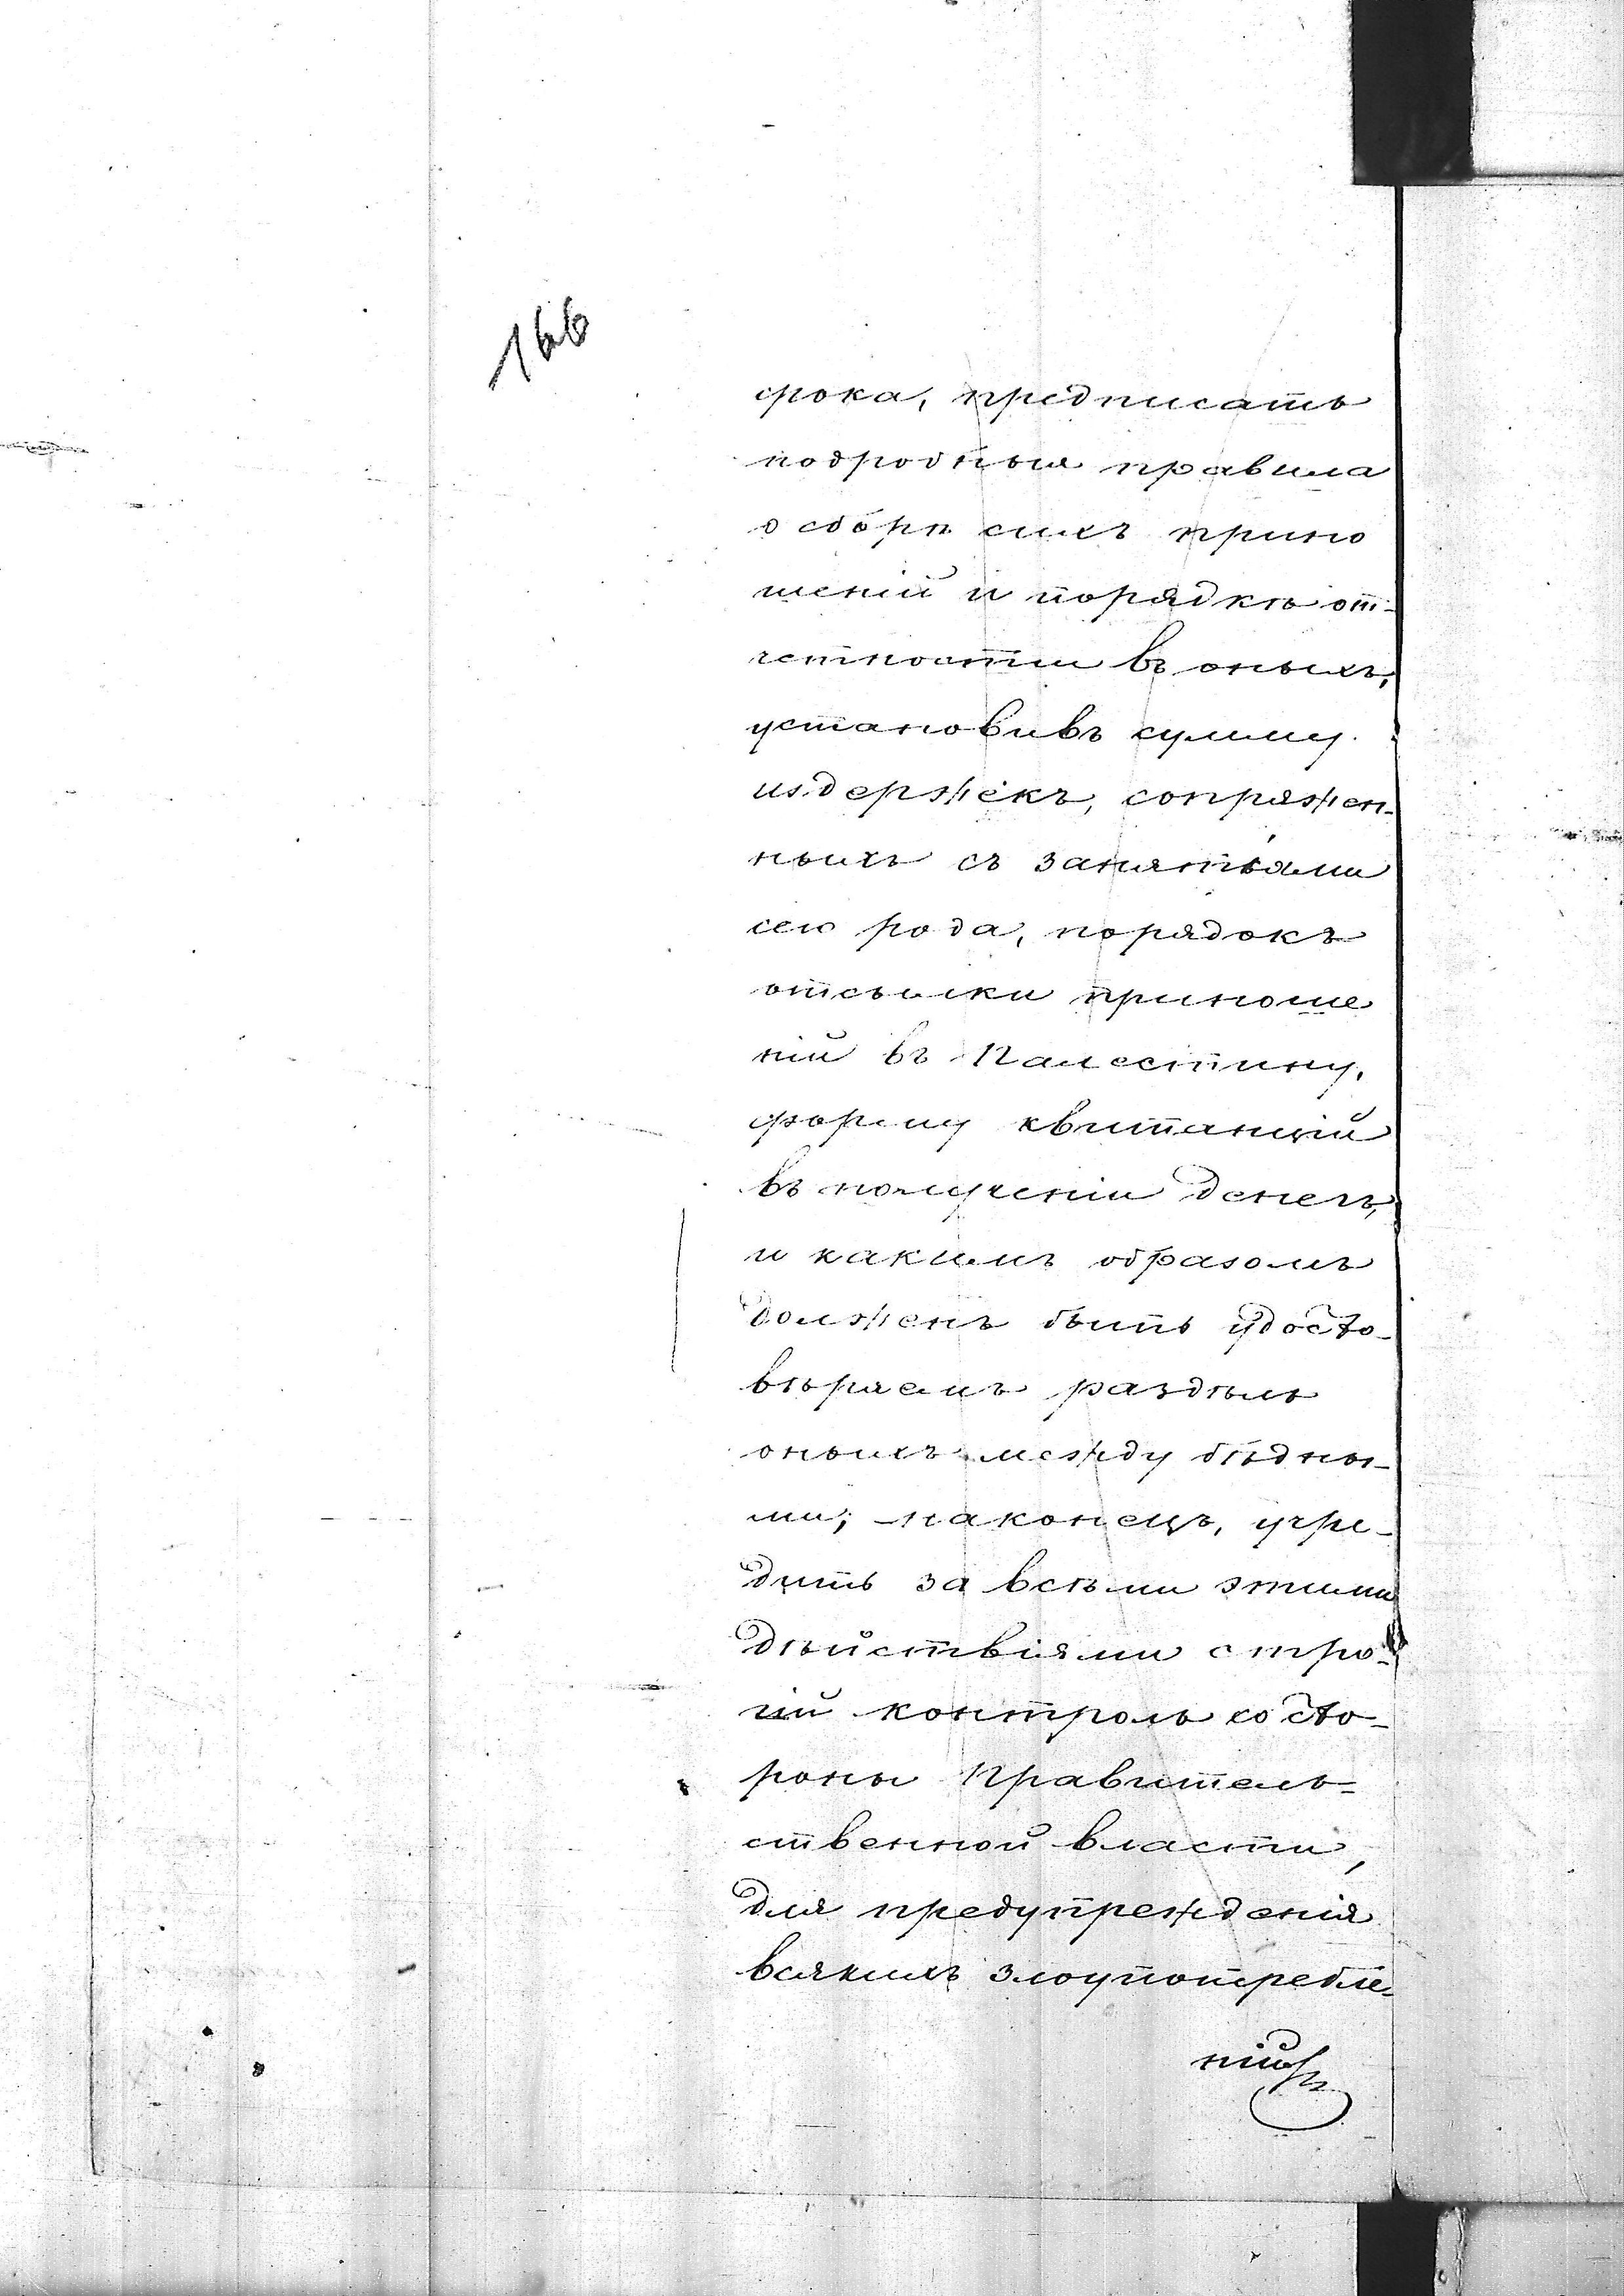 166
срока, предписать
подробныя правила
о сборѣ сихъ прино
шеній и порядкѣ от-
четности въ оныхъ,
установивъ сумму
издержекъ, сопряжен-
ныхъ съ занятіями
сего рода, порядокъ
отсылки приноше
ній въ Палестину,
форму квитанцій
въ полученіи денегъ,
и какимъ образомъ
долженъ быть удосто-
вѣряемъ раздѣлъ
оныхъ между бѣдны-
ми; наконецъ, учре-
дить за всѣми этими
дѣйствіями стро-
гій контроль со сто-
роны Правитель-
ственной власти,
для предупрежденія
всякихъ злоупотребле-
ній